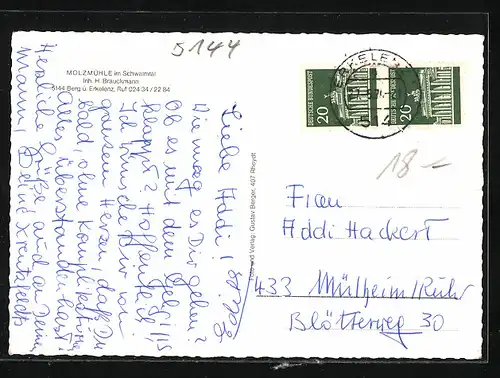 5144
MOLZMÜHLE im Schwalmtal
Inh. H. Brauckmann
5144 Berg ü. Erkelenz, Ruf 024 34 / 22 84
Liebe Addi!
Wie mag es Dir gehen?
Ob es mit dem
klappt? Hoffentlich!
Ich wünsche Dir von
ganzem Herzen, daß Du
bald, ohne Komplikation
alles überstanden hast!
Herzliche Grüße auch an Deinen
Mann, Deine
Foto und Verlag: Gustav Berger, 407 Rheydt
DEUTSCHE BUNDESPOST
20
DEUTSCHE BUNDESPOST
20
ERKELENZ
514
18 –
Frau
Addi Hackert
433 Mülheim/Ruhr
Blötterweg 30